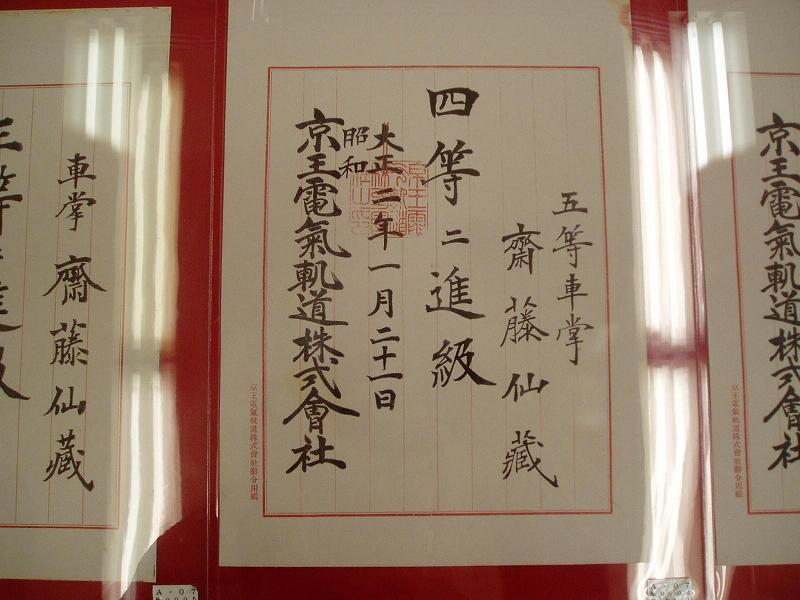 五等車掌
齋藤仙藏
四等ニ進級
大正
昭和二年一月二十一日
京王電氣軌道株式會社
京王電氣軌道株式會社辭令用紙
車掌齋藤仙藏
三等ニ進級
京王電氣軌道株式會社
京王電氣軌道株式會社辭令用紙
A-07
A-07